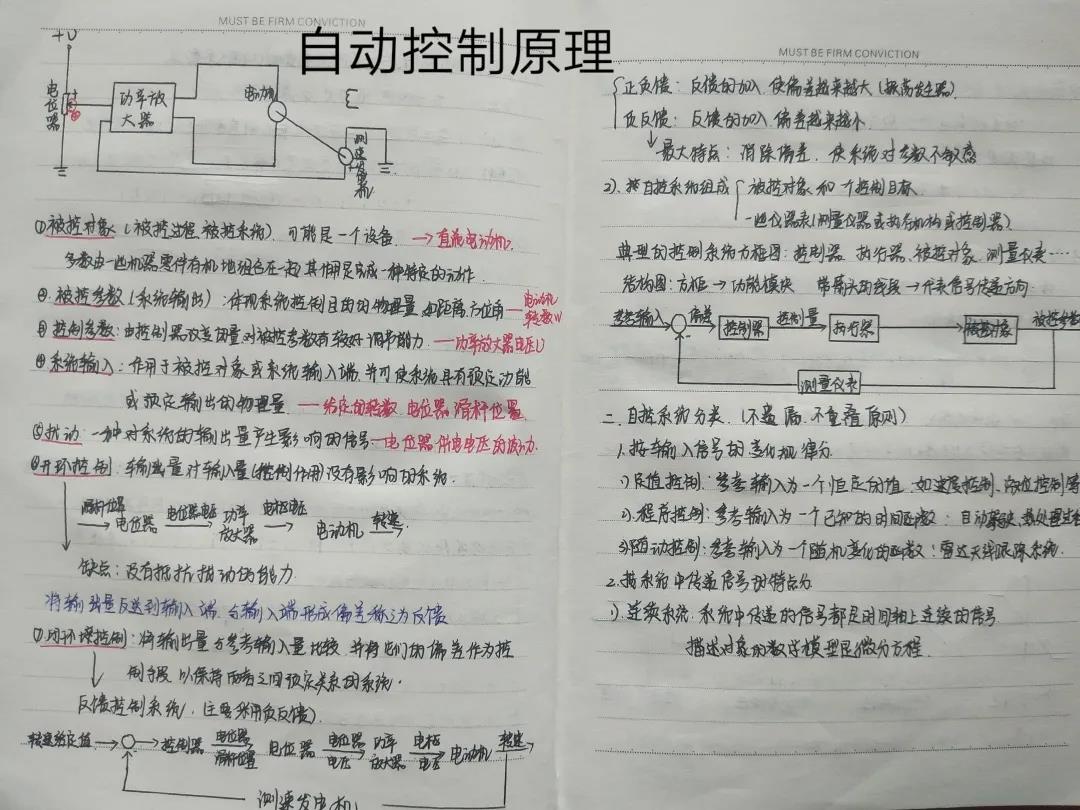 MUST BE FIRM CONVICTION
自动控制原理
+U
电位器
功率放大器
电动机
测速发电机
①被控对象(被控过程、被控系统)、可能是一个设备. →直流电动机.
多数由一些机器零件有机地组合在一起,其作用是完成一种特定的动作.
②.被控参数(系统输出):体现系统控制目的的物理量 如距离、方位角—电动机转数N
③控制参数:由控制器改变且量对被控参数有较好调节能力.—功率放大器电压U
④系统输入:作用于被控对象或系统输入端,并可使系统具有预定功能
或预定输出的物理量.—给定的转数 电位器滑杆位置
⑤扰动:一种对系统的输出量产生影响的信号—电位器供电电压的波动.
⑥开环控制:输出量对输入量(控制作用)没有影响的系统.
滑杆位置→电位器 电位器电压→功率放大器 电枢电压→电动机 转速→
缺点:没有抵抗扰动的能力.
将输出量反送到输入端,与输入端形成偏差称之为反馈
⑦闭环控制:将输出量与参考输入量比较,并将他们的偏差作为控
制手段,以保持两者之间预定关系的系统.
反馈控制系统,(主要采用负反馈).
转速给定值→ →控制器 电位器滑杆位置 电位器 电位器电压 功率放大器 电枢电压 电动机 转速
测速发电机
MUST BE FIRM CONVICTION
正负馈:反馈的加入,使偏差越来越大(振荡发生器).
负反馈:反馈的加入 偏差越来越小.
最大特点:消除偏差,使系统对参数不敏感
2).按自控系统组成 被控对象和一个控制目标
一些仪器表(测量仪器或执行机构或控制器)
典型的控制系统方框图:控制器、执行器、被控对象、测量仪表…
结构图:方框→功能模块 带箭头的线段→代表信号传递方向.
参考输入 偏差 控制器 控制量 执行器 被控对象 被控参数
测量仪表
二.自控系统分类.(不遗漏、不重叠原则)
1.按输入信号的变化规律分.
1)恒值控制:参考输入为一个恒定的值,如速度控制、液位控制等
2).程序控制:参考输入为一个已知的时间函数:自动
3)随动控制:参考输入为一个随机变化的函数:雷达天线跟踪系统.
2.按系统中传递信号的特点分
1).连续系统:系统中传递的信号都是时间轴上连续的信号.
描述对象的数学模型是微分方程.